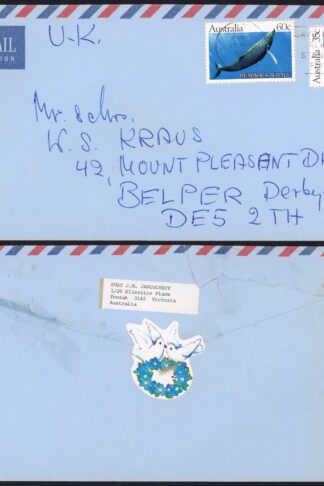 AIL
U-K.
Australia 60c
HUMPBACK WHALE
Australia 35c
W. S. KRAUS
42, MOUNT PLEASENT D
BELPER Derby
DE5 2TH
SUSY J.M. JANUSCHEPP
1/26 Ellerslie Place
Toorak 3142 Victoria
Australia